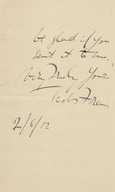 be glad if you
sent it to me.
Very Truly Yours
2/6/12